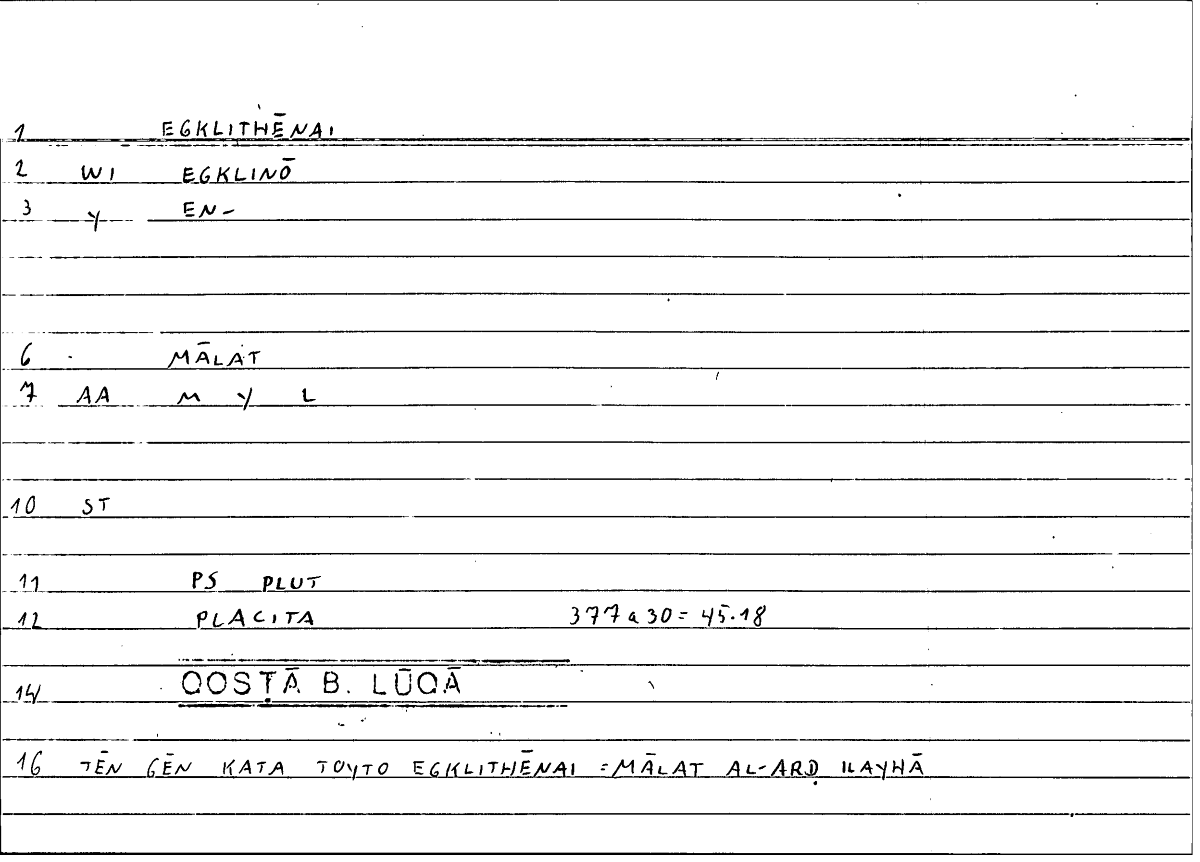 1 EGKLITHĒNAI
2 WI EGKLINŌ
3 Y EN-
6 MĀLAT
7 AA M Y L
10 ST
11 PS PLUT
12 PLACITA 377a30 = 45.18
14 QOSṬĀ B. LŪQĀ
16 TĒN GĒN KATA TOYTO EGKLITHĒNAI = MĀLAT AL-ARḌ ILAYHĀ